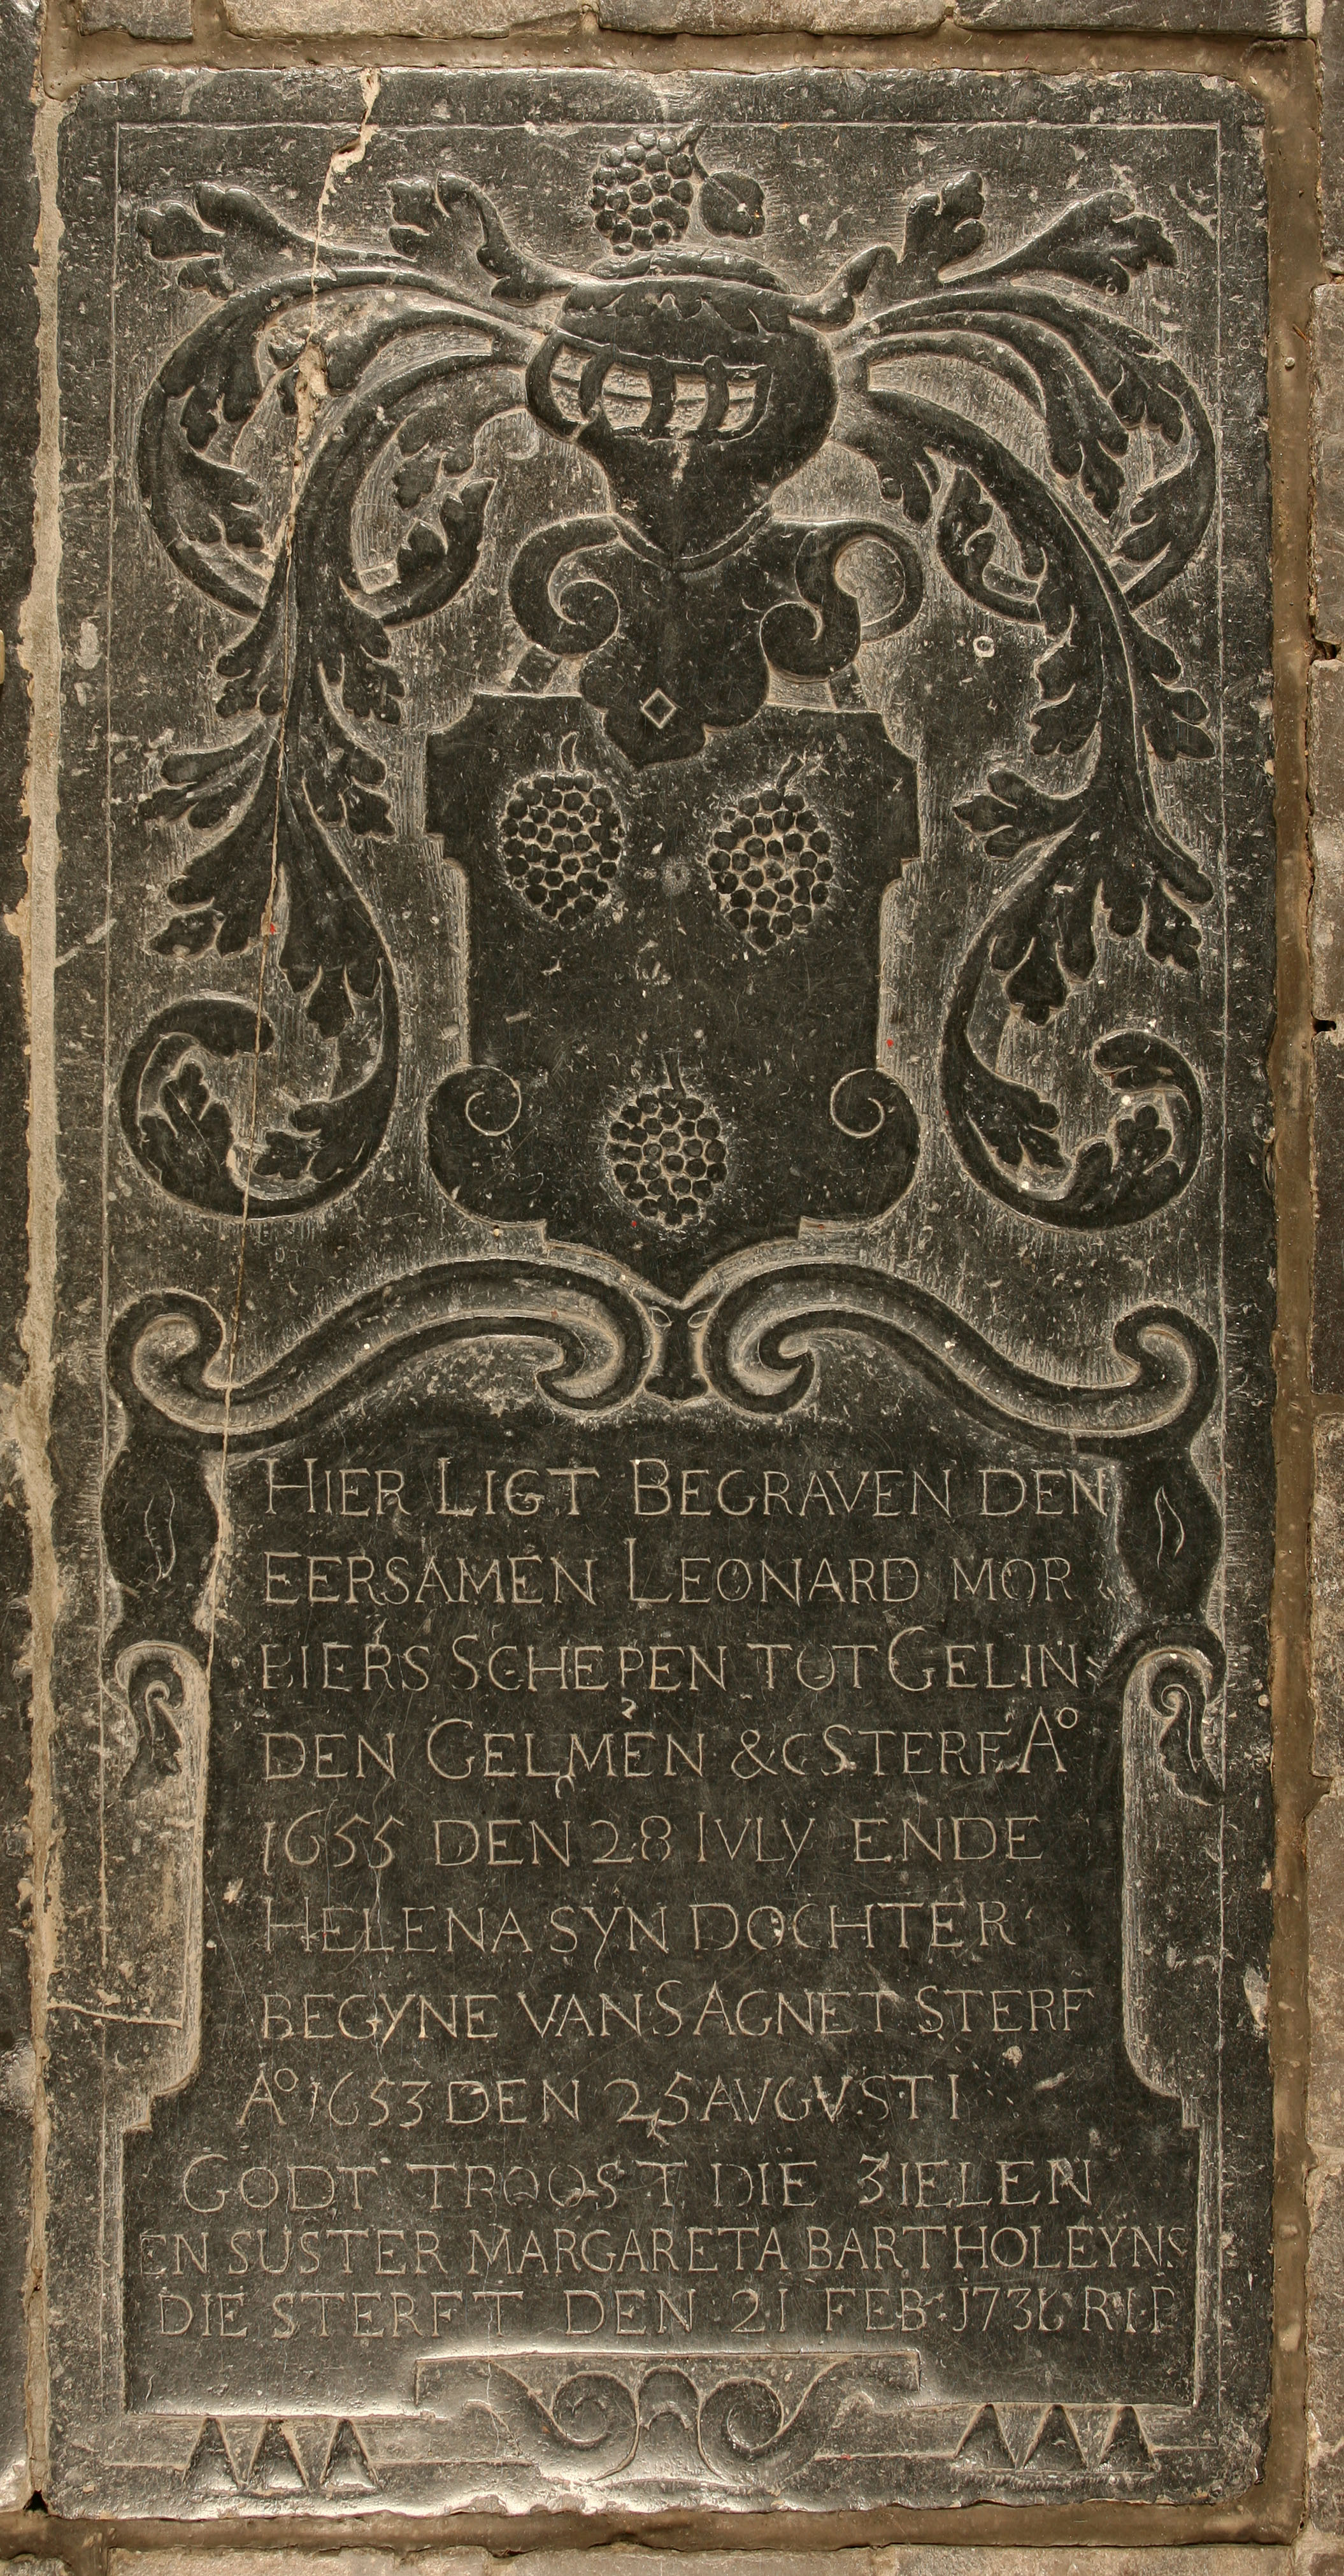 HIER LIGT BEGRAVEN DEN
EERSAMEN LEONARD MOR
BIERS SCHEPEN TOT GELIN
DEN GELMEN &C STERF Aº
1655 DEN 28 IVLY ENDE
HELENA SYN DOCHTER
BEGYNE VAN S AGNET STERF
Aº 1653 DEN 25 AVGVSTI
GODT TROOST DIE ZIELEN
EN SUSTER MARGARETA BARTHOLEYNS
DIE STERFT DEN 21 FEB 1736 R I P